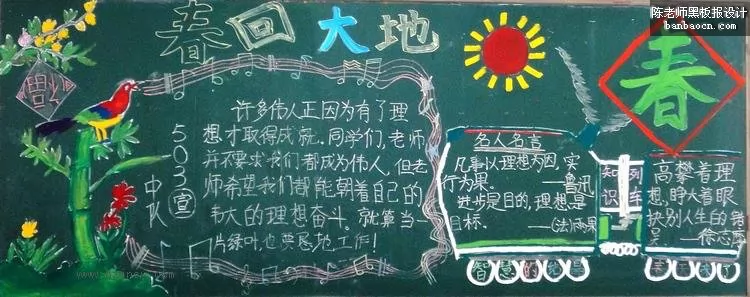 陈老师黑板报设计
banbaocn.com
春回大地
福
春
503宣
中队
许多伟人正因为有了理
想才取得成就。同学们,老师
并不要求我们都成为伟人,但老
师希望我们都能朝着自己的
伟大的理想奋斗。就算当一
片绿叶也要恳地工作!
名人名言
凡事以理想为因,实
行为果。 ——鲁迅
进步是目的,理想是
目标。 ——(法)雨果
知识
列车
高攀着理
想,睁大着眼
抉别人生的错
误 ——徐志摩
智慧的